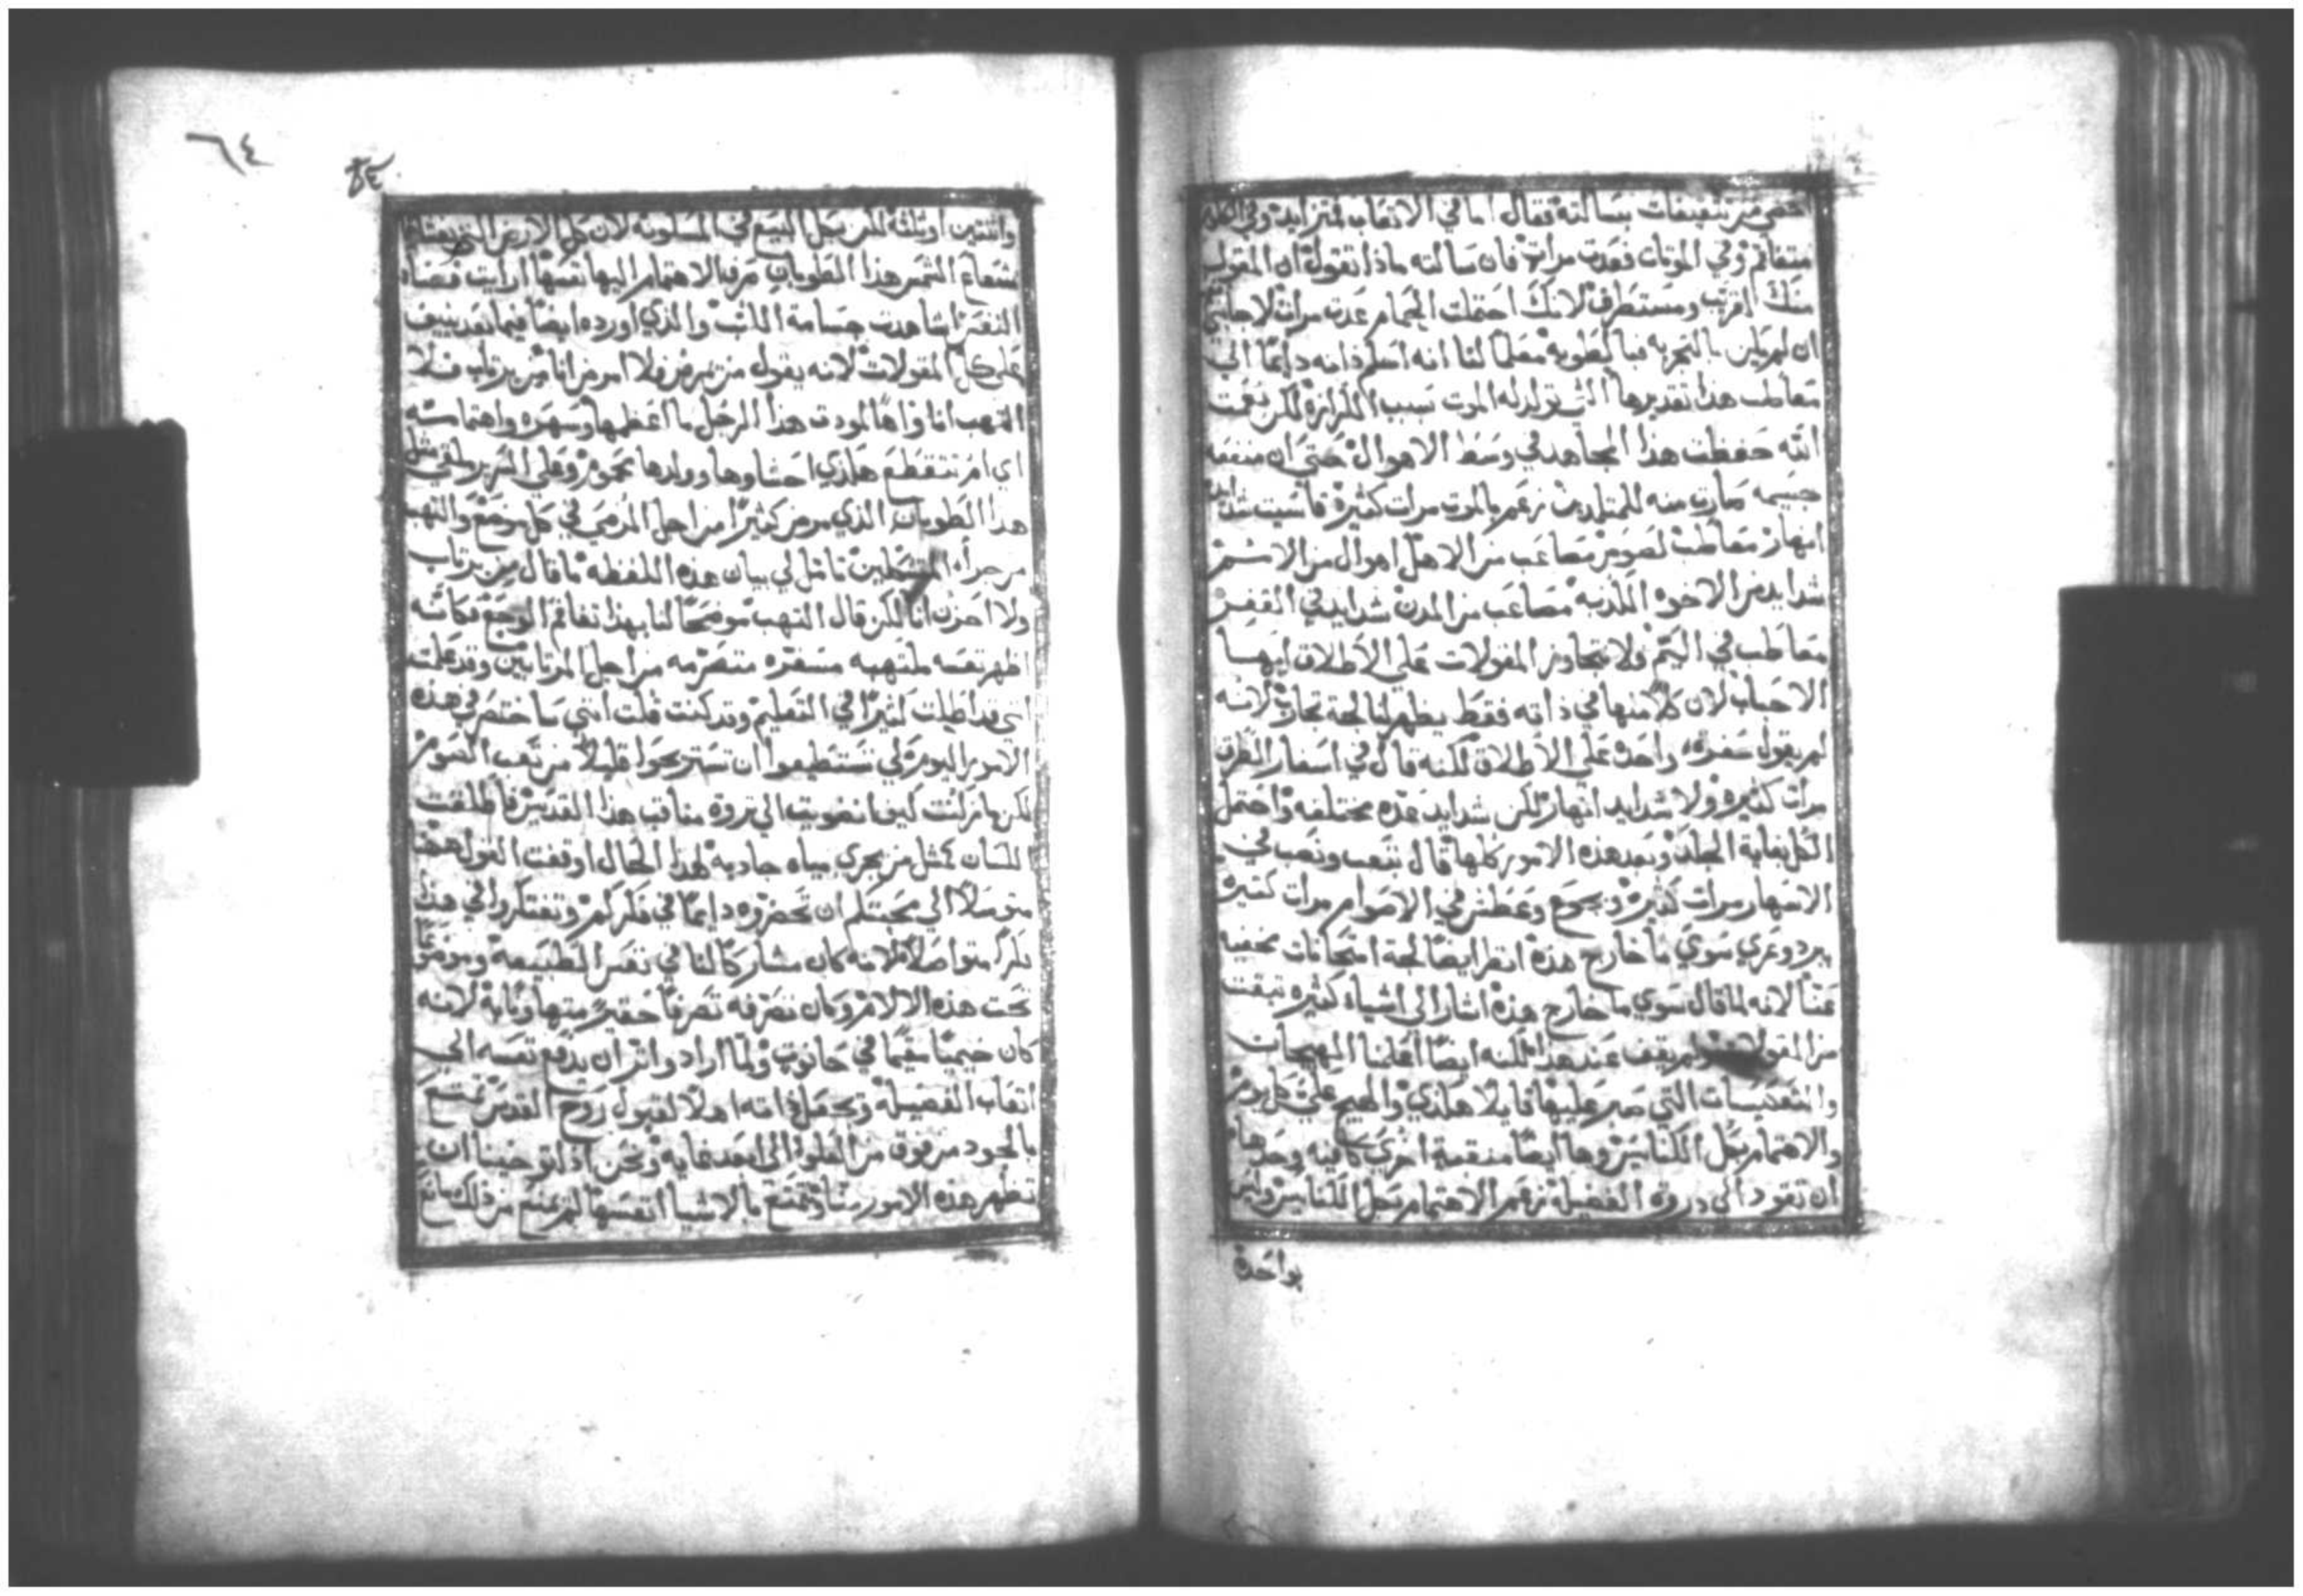 فقال اما في الاتعاب فمتزايد وفي الجلد
متفاقم وفي الموتات فعدت مرات فان سالته ماذا تقول ان المقول
منك اقرب ومستطرف لانك احتملت الحمام عدت مرات لاجابني
ان لم يكن بالتجربه فبالطويه معلما لنا انه اسلم ذاته دايما الي
معاطب هذا تقديرها التي تولد له الموت بسبب الكرازة لكن نعمت
الله حفظت هذا المجاهد في وسط الاهوال حتي ان منفعه
جسيمه صارت منه للمتلمدين زعم بالموت مرات كثيرة قاسيت شدايد
انهار معاطب لصوص مصاعب من الاهل اهوال من الامم
شدايد من الاخوه الكذبه مصاعب من المدن شدايد في القفر
معاطب في اليم ولا نتجاوز المقولات علي الاطلاق ايها
الاحباب لان كلا منها في ذاته فقط يظهر لنا لجة تجارب لانه
لم يقول سفرة واحدة علي الاطلاق لكنه قال في اسفار الطرق
مرات كثيره ولا شدايد انهار لكن شدايد عده مختلفه واحتمل
الكل بغاية الجلد وبعد هذه الامور كلها قال بتعب ونصب في
الاسهار مرات كثيرة وبجوع وعطش في الاصوام مرات كثيرة
ببرد وعري سوي ما خارج هذه انظر ايضا لجة امتحانات مخفيه
عنا لانه لما قال سوي ما خارج هذه اشار الي اشياء كثيره تبقت
من المقولات ولم يقف عند هذا لكنه ايضا اعلننا المهيجات
والتعبسات التي صبر عليها قايلا هكذي والهيج علي كل يوم
والاهتمام بكل الكنايس وها ايضا منقبة اخري كافيه وحدها
ان تقود الي دروة الفضيلة زعم الاهتمام بكل الكنايس وليس
بواحدة
٦٤
واثنتين او ثلثه لكن بكل البيع في المسكونه لان كل الارض التي
شعاع الشمس هذا الطوباني صرف الاهتمام اليها نفسها ارايت فضاء
النفس اشاهدت جسامة اللب والذي اورده ايضا فيما بعد ينيف
علي كل المقولات لانه يقول من يمرض ولا امرض انا من يرتاب فلا
التهب انا واها لمودت هذا الرجل ما اعظمها وسهره واهتمامته
اي ام تتقطع هكذي احشاوها وولدها محموم وعلي السرير ملقي مثل
هذا الطوباني الذي مرض كثيرا من اجل المرضي في كل موضع والتهب
من جراء المتشككين تامل لي بيان هذه اللفظه ما قال من يرتاب
ولا احزن انا لكن قال التهب موضحا لنا بهذا تفاقم الوجع فكانه
اظهر نفسه ملتهبه مستعره متضرمه من اجل المرتابين وقد علمت
اني قد اطلت كثيرا في التعليم وقد كنت قلت انني ساختصر في هذه
الامور اليوم لكي تستطيعوا ان تستريحوا قليلا من تعب الصوم
لكن ما زلت كيف انضويت الي ثروة مناقب هذا القديس فاطلقت
اللسان كمثل من يجري بمياه جاريه لهذا الحال اوقفت القول ههنا
متوسلا الي محبتكم ان تحضروه دايما في فكركم وتفتكروا في هذا
ذكرا متواصلا لانه كان مشاركا لنا في نفس الطبيعه وموضوعا
تحت هذه الالام وكان تصرفه تصرفا حقيرا متهاونا به لانه
كان خيميا مقيما في حانوت ولما اراد واثر ان يدفع نفسه الي
اتعاب الفضيلة وتجعل ذاته اهلا لقبول روح القدس تمتع
بالجود من فوق من العلوة الي ابعد غايه ونحن اذا توخينا ان
نظهر هذه الامور منا ونتمتع بالاشيا انفسها لم يمنع من ذلك مانع